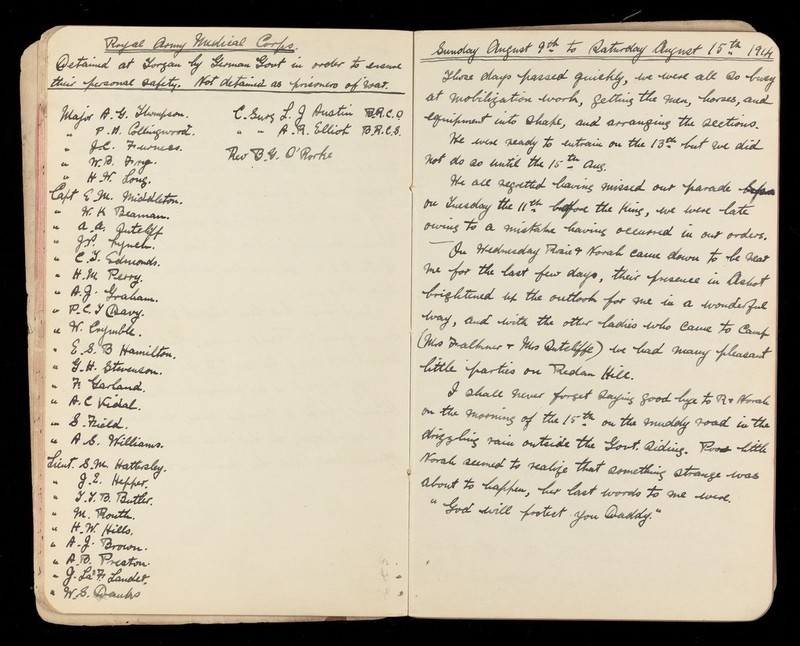 Royal Army Medical Corps.
Detained at Torgau by German Govt in order to ensure
their personal safety. Not detained as prisoners of war.
Major A. G. Thompson.
" P. H. Collingwood.
" J.C. Furness.
" W.B. Frye.
" H. W. Long.
Capt E. M. Middleton.
" W. K Beaman.
" A. A. Sutcliff
" J.P. Lynch.
" C. T. Edmonds.
" H. M. Perry.
" A. J. Graham.
" P. C. T Davy.
" W. Crymble.
" E. S. B Hamilton.
" G. H. Stevenson.
" F. Garland.
" A. C Vidal.
" S. Field.
" A S. Williams.
Lieut. S. M. Hattersley.
" J. E. Hepper.
" T. T. B. Butler.
" M. Routh.
" H. W. Hills.
" A. J. Brown.
" A. B. Preston.
" J. La F. Lauder.
" W. S. Danks
C. Surg L. J Austin B.R.C.S
" " A. R. Elliot B.R.C.S.
Rev B. G. O'Rorke
Sunday August 9th to Saturday August 15th 1914
These days passed quickly, we were all so busy
at mobilization work, getting the men, horses, and
equipment into shape, and arranging the sections.
We were ready to entrain on the 13th but we did
not do so until the 15th Aug.
We all regretted having missed our parade
on Tuesday the 11th before the King, we were late
owing to a mistake having occurred in our orders.
On Wednesday Rosie & Norah came down to be near
me for the last few days, their presence in Ashot
brightened up the outlook for me in a wonderful
way, and with the other ladies who came to Camp
(Mrs Falkner & Mrs Sutcliffe) we had many pleasant
little parties on Redan Hill.
I shall never forget saying good bye to R & Norah
on the morning of the 15th on the muddy road in the
drizzling rain outside the Govt. Siding. Poor little
Norah seemed to realize that something strange was
about to happen, her last words to me were.
"God will protect you Daddy."